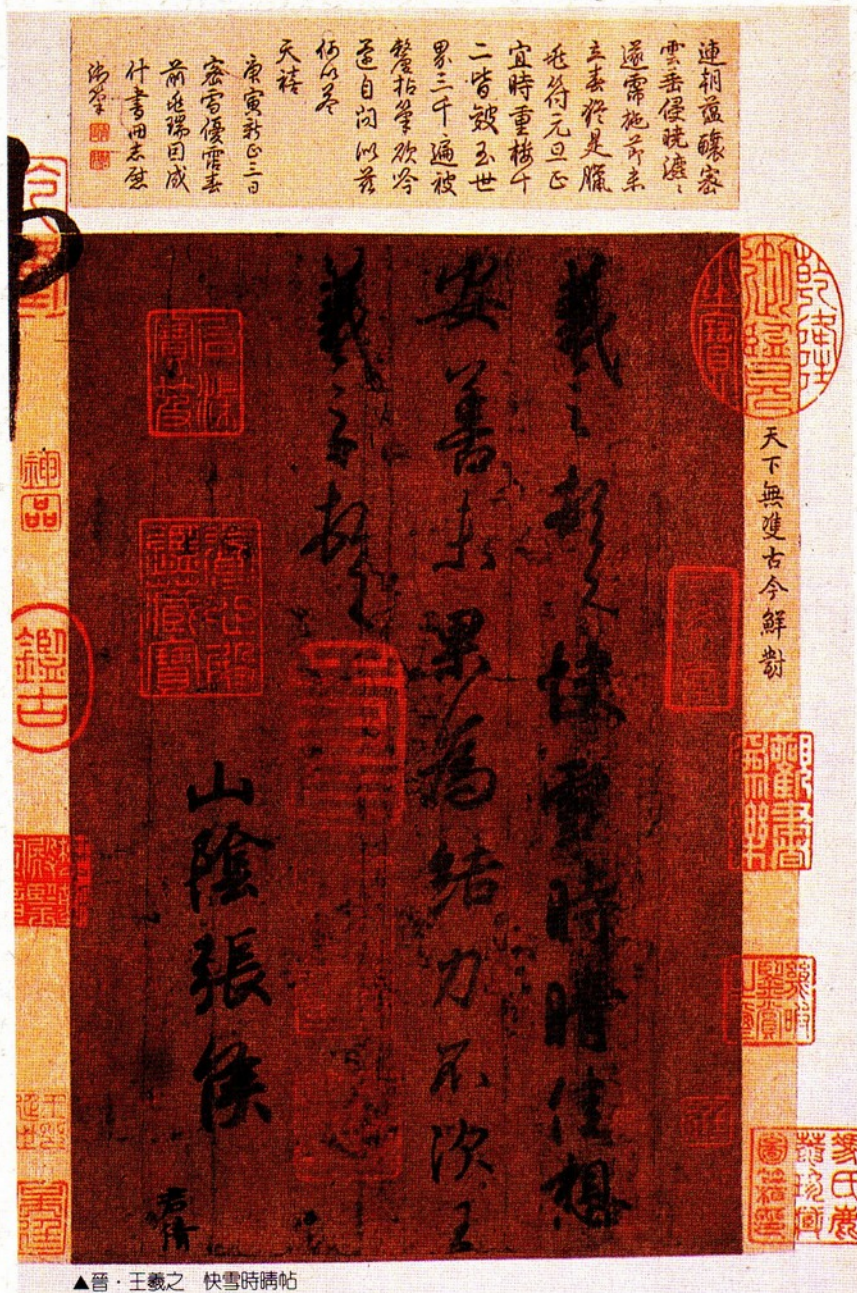 連朝蘊釀密
雲垂侵曉瀌〻
遂霈施節未
立春猶是臘
兆符元旦正
宜時重樓十
二皆皴玉世
界三千遍被
釐拈筆欲吟
還自問似茲
何以答
天禧
庚寅新正三日
密雪優霑春
前兆瑞因成
什書冊志慰
御筆
天下無雙古今鮮對
羲之頓首快雪時晴佳想
安善未果為結力不次王
羲之頓首
山陰張侯
君倩
神品
鑑古
▲晉・王羲之　快雪時晴帖